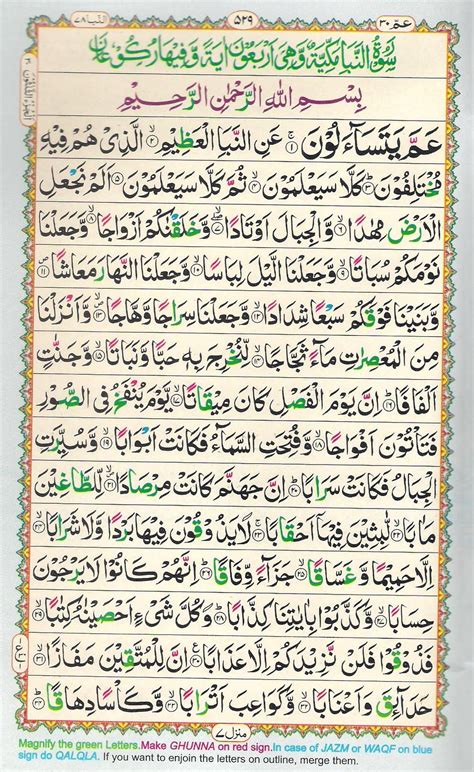 عمّ ٣٠
٥٢٩
النبا ٧٨
سُوْرَةُ النَّبَاِ مَكِّيَّةٌ وَّهِيَ اَرْبَعُوْنَ اٰيَةً وَّفِيْهَا رُكُوْعَانِ
بِسْمِ اللّٰهِ الرَّحْمٰنِ الرَّحِيْمِ
عَمَّ يَتَسَآءَلُوْنَ ۝١ عَنِ النَّبَاِ الْعَظِيْمِ ۝٢ الَّذِيْ هُمْ فِيْهِ
مُخْتَلِفُوْنَ ۝٣ كَلَّا سَيَعْلَمُوْنَ ۝٤ ثُمَّ كَلَّا سَيَعْلَمُوْنَ ۝٥ اَلَمْ نَجْعَلِ
الْاَرْضَ مِهٰدًا ۝٦ وَّالْجِبَالَ اَوْتَادًا ۝٧ وَّخَلَقْنٰكُمْ اَزْوَاجًا ۝٨ وَّجَعَلْنَا
نَوْمَكُمْ سُبَاتًا ۝٩ وَّجَعَلْنَا الَّيْلَ لِبَاسًا ۝١٠ وَّجَعَلْنَا النَّهَارَ مَعَاشًا ۝١١
وَّبَنَيْنَا فَوْقَكُمْ سَبْعًا شِدَادًا ۝١٢ وَّجَعَلْنَا سِرَاجًا وَّهَّاجًا ۝١٣ وَّاَنْزَلْنَا
مِنَ الْمُعْصِرٰتِ مَآءً ثَجَّاجًا ۝١٤ لِّنُخْرِجَ بِهٖ حَبًّا وَّنَبَاتًا ۝١٥ وَّجَنّٰتٍ
اَلْفَافًا ۝١٦ اِنَّ يَوْمَ الْفَصْلِ كَانَ مِيْقَاتًا ۝١٧ يَّوْمَ يُنْفَخُ فِى الصُّوْرِ
فَتَاْتُوْنَ اَفْوَاجًا ۝١٨ وَّفُتِحَتِ السَّمَآءُ فَكَانَتْ اَبْوَابًا ۝١٩ وَّسُيِّرَتِ
الْجِبَالُ فَكَانَتْ سَرَابًا ۝٢٠ اِنَّ جَهَنَّمَ كَانَتْ مِرْصَادًا ۝٢١ لِّلطَّاغِيْنَ
مَاٰبًا ۝٢٢ لّٰبِثِيْنَ فِيْهَآ اَحْقَابًا ۝٢٣ لَا يَذُوْقُوْنَ فِيْهَا بَرْدًا وَّلَا شَرَابًا ۝٢٤
اِلَّا حَمِيْمًا وَّغَسَّاقًا ۝٢٥ جَزَآءً وِّفَاقًا ۝٢٦ اِنَّهُمْ كَانُوْا لَا يَرْجُوْنَ
حِسَابًا ۝٢٧ وَّكَذَّبُوْا بِاٰيٰتِنَا كِذَّابًا ۝٢٨ وَكُلَّ شَيْءٍ اَحْصَيْنٰهُ كِتٰبًا ۝٢٩
فَذُوْقُوْا فَلَنْ نَّزِيْدَكُمْ اِلَّا عَذَابًا ۝٣٠ اِنَّ لِلْمُتَّقِيْنَ مَفَازًا ۝٣١
حَدَآئِقَ وَاَعْنَابًا ۝٣٢ وَّكَوَاعِبَ اَتْرَابًا ۝٣٣ وَّكَاْسًا دِهَاقًا ۝٣٤
منزل ٧
Magnify the green Letters.Make GHUNNA on red sign.In case of JAZM or WAQF on blue
sign do QALQLA. If you want to enjoin the letters on outline, merge them.